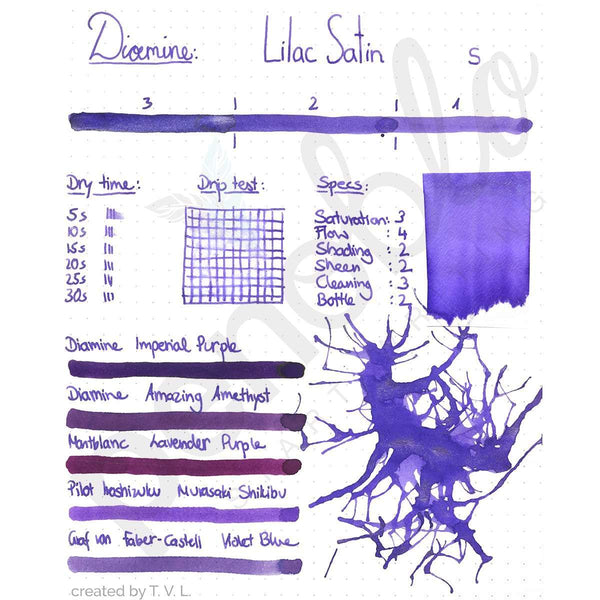 Diamine: Lilac Satin S
3 | 2 | 1
Dry time: Drip test: Specs:
5s
10s
15s
20s
25s
30s
Saturation: 3
Flow : 4
Shading : 2
Sheen : 2
Cleaning : 3
Bottle : 2
Diamine Imperial Purple
Diamine Amazing Amethyst
Montblanc Lavender Purple
Pilot Iroshizuku Murasaki Shikibu
Graf von Faber-Castell Violet Blue
created by T. V. L.